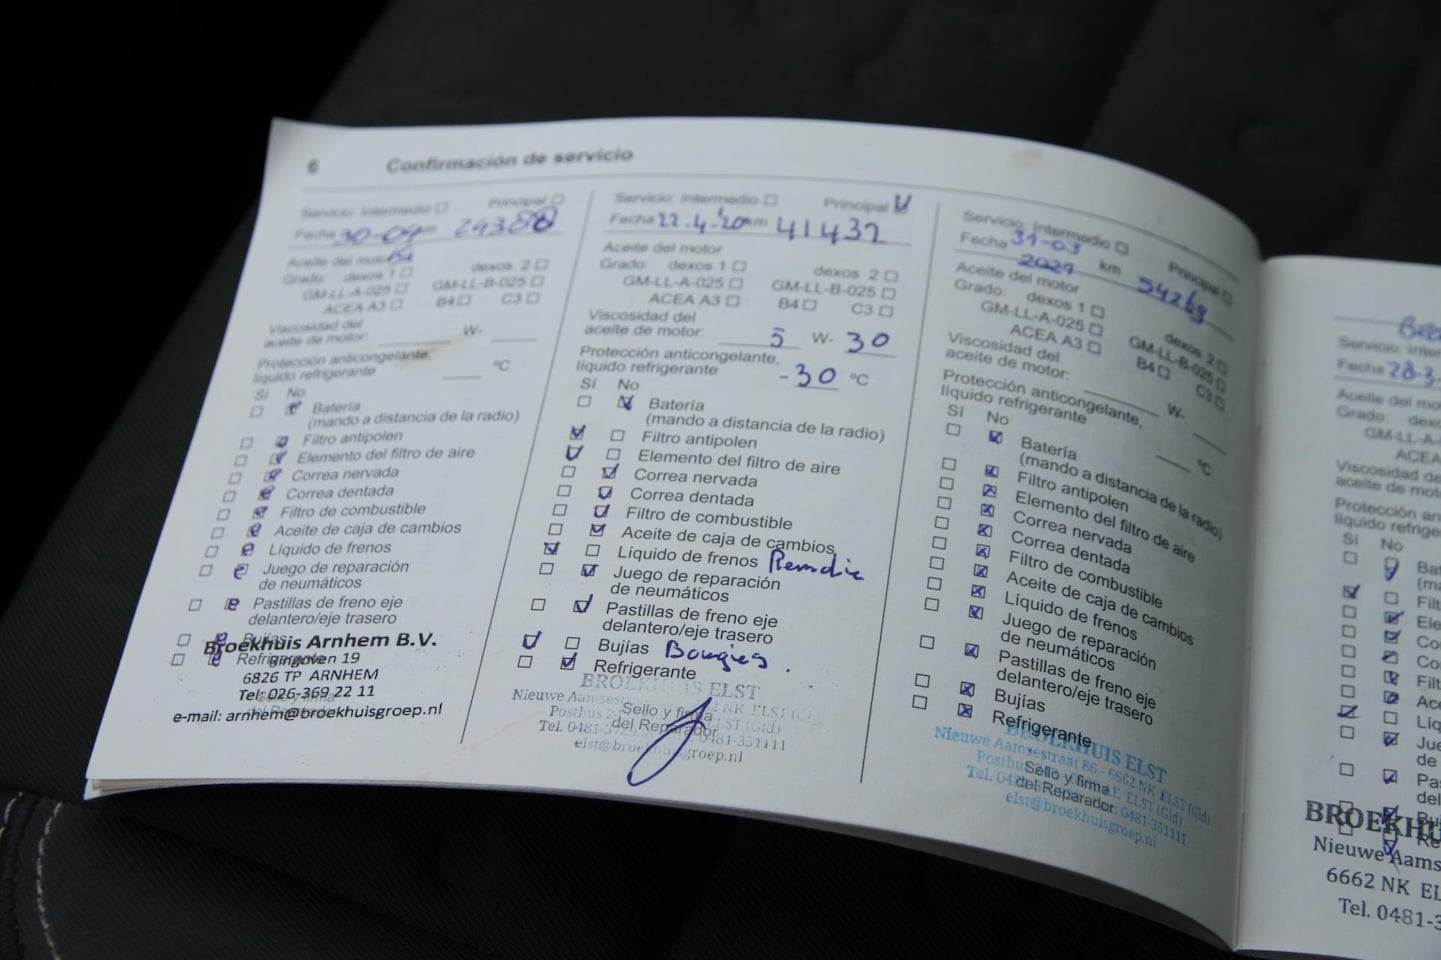 6 Confirmación de servicio
Servicio: Intermedio Principal
Fecha 30-09 km
Aceite del motor
Grado: dexos 1 dexos 2
GM-LL-A-025 GM-LL-B-025
ACEA A3 B4 C3
Viscosidad del
aceite de motor: W-
Protección anticongelante,
líquido refrigerante °C
Sí No
Batería
(mando a distancia de la radio)
Filtro antipolen
Elemento del filtro de aire
Correa nervada
Correa dentada
Filtro de combustible
Aceite de caja de cambios
Líquido de frenos
Juego de reparación
de neumáticos
Pastillas de freno eje
delantero/eje trasero
Bujías
Broekhuis Arnhem B.V.
Refrigerante
19
6826 TP ARNHEM
Tel: 026-369 22 11
e-mail: arnhem@broekhuisgroep.nl
Servicio: Intermedio Principal
Fecha 22.4.'20 km 41432
Aceite del motor
Grado: dexos 1 dexos 2
GM-LL-A-025 GM-LL-B-025
ACEA A3 B4 C3
Viscosidad del
aceite de motor: 5 W- 30
Protección anticongelante,
líquido refrigerante -30 °C
Sí No
Batería
(mando a distancia de la radio)
Filtro antipolen
Elemento del filtro de aire
Correa nervada
Correa dentada
Filtro de combustible
Aceite de caja de cambios
Líquido de frenos
Juego de reparación
de neumáticos
Pastillas de freno eje
delantero/eje trasero
Bujías Bougies.
Refrigerante
BROEKHUIS ELST
Nieuwe
Sello y firma
Postbus
del Reparador
Tel. 0481-351111
elst@broekhuisgroep.nl
Servicio: Intermedio Principal
Fecha 31-03
2021 km 54269
Aceite del motor
Grado: dexos 1 dexos 2
GM-LL-A-025 GM-LL-B-025
ACEA A3 B4 C3
Viscosidad del
aceite de motor: W-
Protección anticongelante,
líquido refrigerante °C
Sí No
Batería
(mando a distancia de la radio)
Filtro antipolen
Elemento del filtro de aire
Correa nervada
Correa dentada
Filtro de combustible
Aceite de caja de cambios
Líquido de frenos
Juego de reparación
de neumáticos
Pastillas de freno eje
delantero/eje trasero
Bujías
Refrigerante
BROEKHUIS ELST
Nieuwe Aamsestraat 86 - 6662 NK ELST (Gld)
Postbus ELST (Gld)
Sello y firma
del Reparador
Tel. 0481-351111
elst@broekhuisgroep.nl
Servicio: Inter
Fecha 28-3
Aceite del mo
Grado:
GM-LL-A
ACEA
Viscosidad de
aceite de mot
Protección
líquido refrige
Sí No
Bat
(ma
Filt
Ele
Co
Co
Filt
Ace
Líq
Jue
de
Pas
del
Buj
BROEKHU
Re
Nieuwe Aams
6662 NK EL
Tel. 0481-3